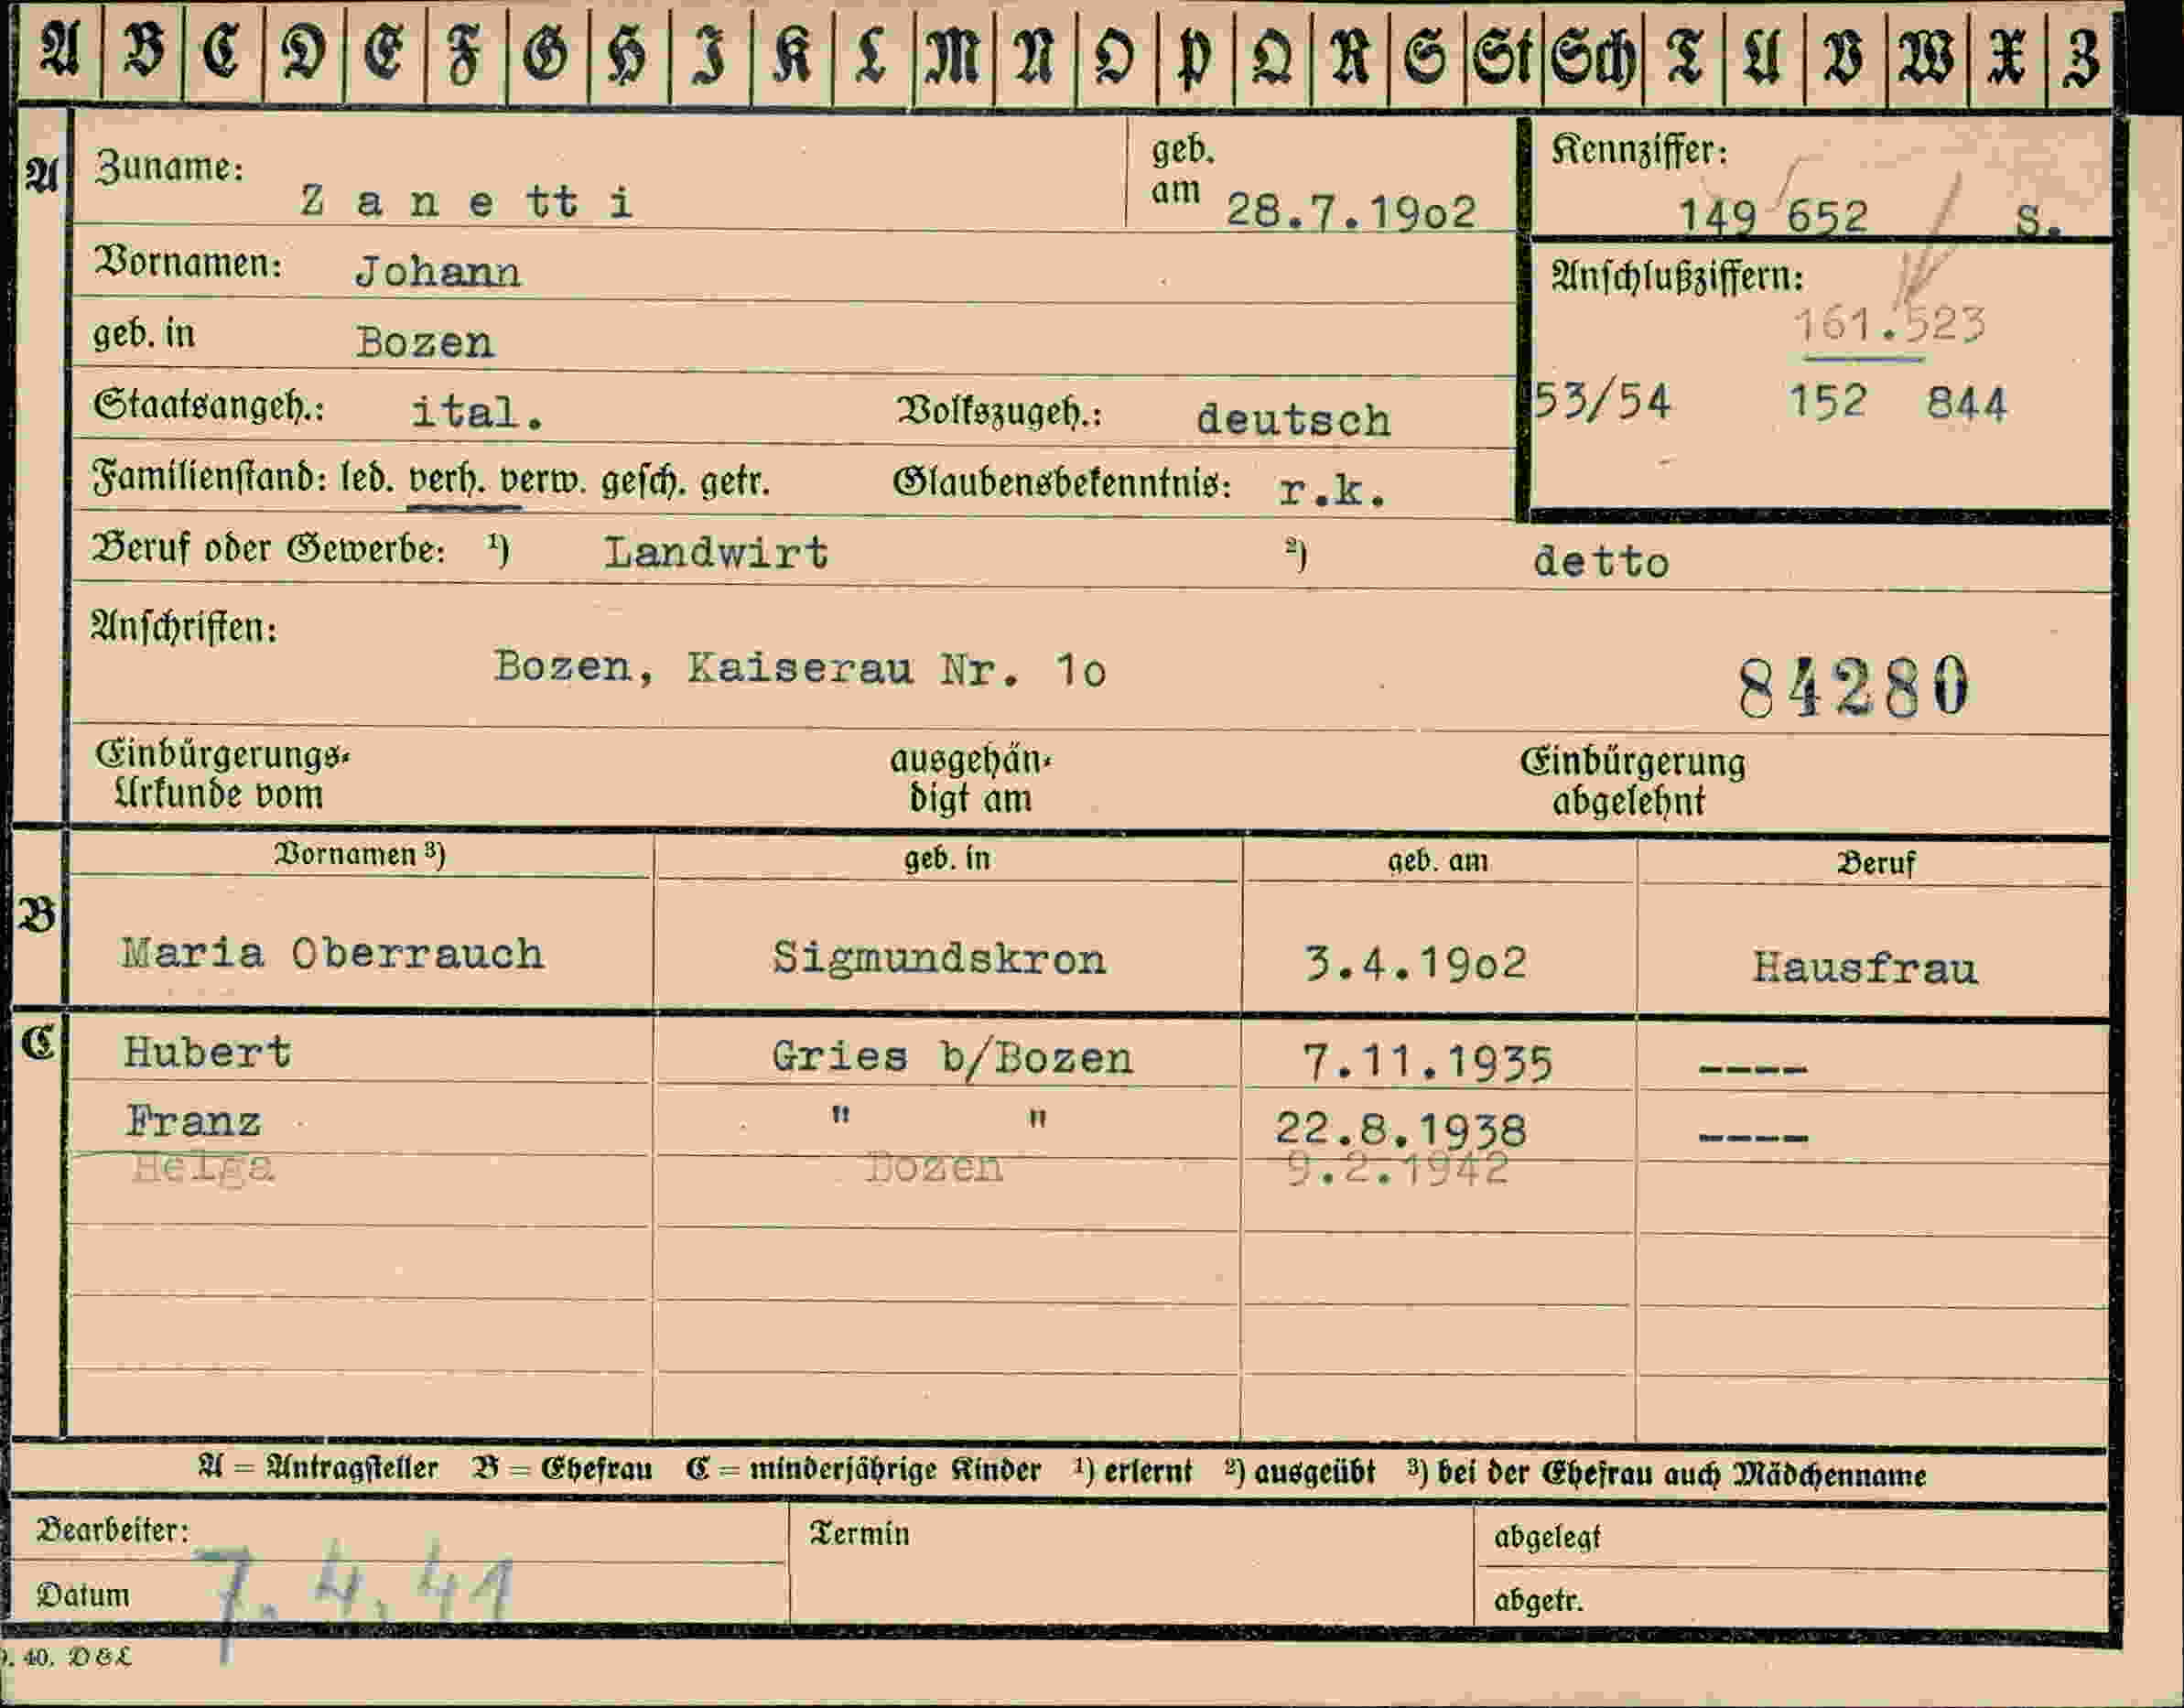 A B C D E F G H I K L M N O P Q R S St Sch T U V W X Z
A Zuname: Zanetti geb. am 28.7.19o2 Kennziffer: 149 652 S.
Vornamen: Johann Anschlußziffern:
161.523
geb. in Bozen
Staatsangeh.: ital. Volkszugeh.: deutsch 53/54 152 844
Familienstand: led. verh. verw. gesch. getr. Glaubensbekenntnis: r.k.
Beruf oder Gewerbe: ¹) Landwirt ²) detto
Anschriften:
Bozen, Kaiserau Nr. 1o 84280
Einbürgerungs- ausgehän- Einbürgerung
Urkunde vom digt am abgelehnt
Vornamen ³) geb. in geb. am Beruf
B Maria Oberrauch Sigmundskron 3.4.19o2 Hausfrau
C Hubert Gries b/Bozen 7.11.1935 ----
Franz " " 22.8.1938 ----
Helga Bozen 9.2.1942
A = Antragsteller B = Ehefrau C = minderjährige Kinder ¹) erlernt ²) ausgeübt ³) bei der Ehefrau auch Mädchenname
Bearbeiter: Termin abgelegt
Datum 7.4.41 abgetr.
40. D&L